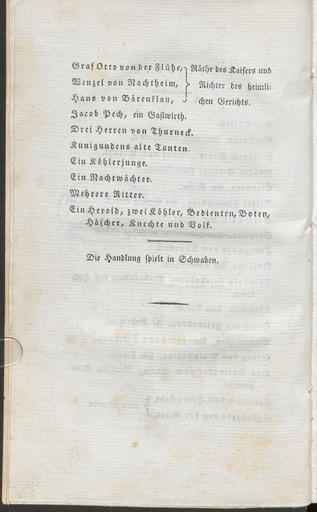 Graf Otto von der Flühe, Räthe des Kaisers und
Wenzel von Nachtheim, Richter des heimli-
Hans von Bärenklau, chen Gerichts.
Jacob Pech, ein Gastwirth.
Drei Herren von Thurneck.
Kunigundens alte Tanten.
Ein Köhlerjunge.
Ein Nachtwächter.
Mehrere Ritter.
Ein Herold, zwei Köhler, Bedienten, Boten,
Häscher, Knechte und Volk.
Die Handlung spielt in Schwaben.